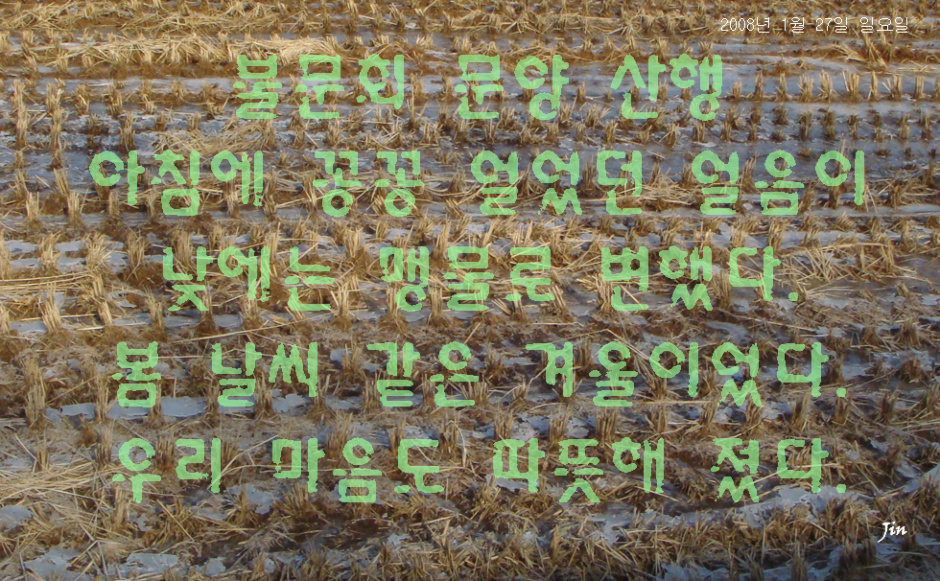 2008년 1월 27일 일요일
불문회 문양 산행
아침에 꽁꽁 얼었던 얼음이
낮에는 맹물로 변했다.
봄 날씨 같은 겨울이었다.
우리 마음도 따뜻해 졌다.
Jin